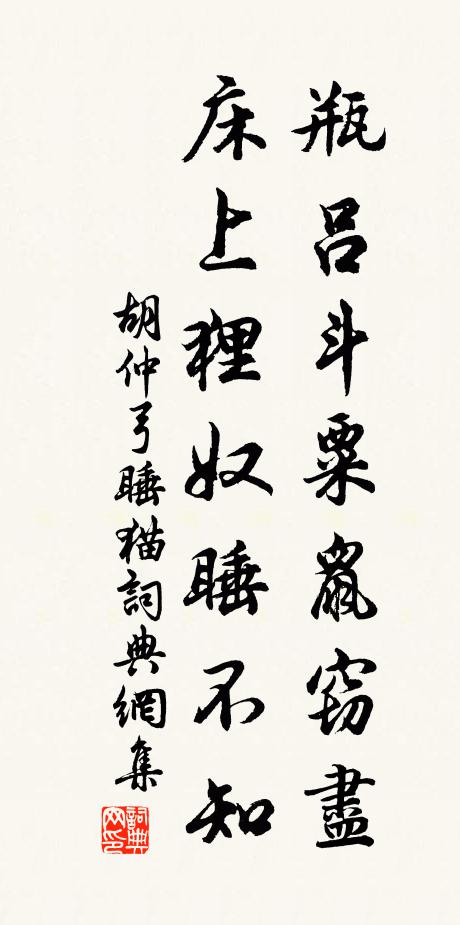 瓶吕斗粟鼠窃盡
床上狸奴睡不知
胡仲弓睡猫詞典網集
詞典网印